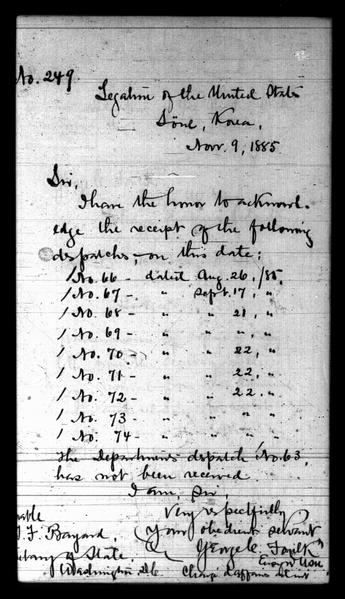 No. 249.
Legation of the United States
Söul, Korea,
Nov. 9, 1885
Sir,
I have the honor to acknowl-
edge the receipt of the following
dispatches, on this date:
/ No. 66 - dated Aug. 26, /85,
/ No. 67 - " Sept. 17, "
/ No. 68 - " " 21, "
/ No. 69 - " " ", "
/ No. 70 - " " 22, "
/ No. 71 - " " 22, "
/ No. 72 - " " 22. "
/ No. 73 " " "
/ No. 74 - " " "
The Department's dispatch No. 63,
has not been received
I am, Sir,
Very respectfully
Your obedient servant
George C. Foulk
Ensign USN
Chargé d'affaires
able
T. F. Bayard,
etary of State,
Washington, D.C.